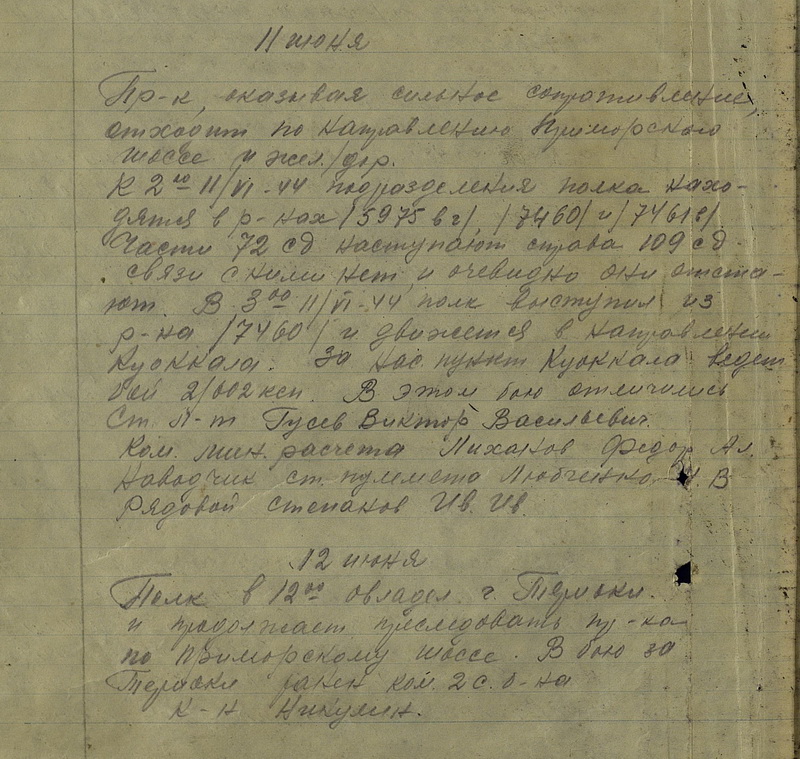 11 июня
Пр-к, оказывая сильное сопротивление,
отходит по направлению Приморского
шоссе и жел/дор.
К 2 00 11/VI-44 подразделения полка нахо-
дятся в р-нах /5975 в г/, /7460/ и /7461в/
Части 72 сд наступают справа 109 сд.
связи с ними нет и очевидно они отста-
ют. В 3 00 11/VI-44 полк выступил из
р-на /7460/ и движется в направлении
Куоккала. За нас. пункт Куоккала ведет
бой 2/602 ксп. В этом бою отличились
Ст. Л-т Гусев Виктор Васильевич.
Ком. мин. расчета Лиханов Федор Ал.
Наводчик ст. пулемета Любченко В
Рядовой Степанов Ив. Ив.
12 июня
Полк в 12 00 овладел г. Териоки.
и продолжает преследовать пр-ка
по Приморскому шоссе. В бою за
Териоки ранен ком. 2 с. б-на
к-н Никулин.